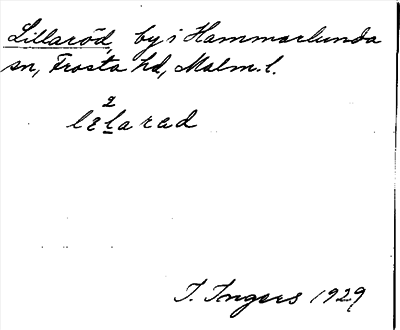 Lillaröd, by i Hammarlunda
sn, Frosta hd, Malm. l.
lɛ²l̲arad
I. Ingers 1929